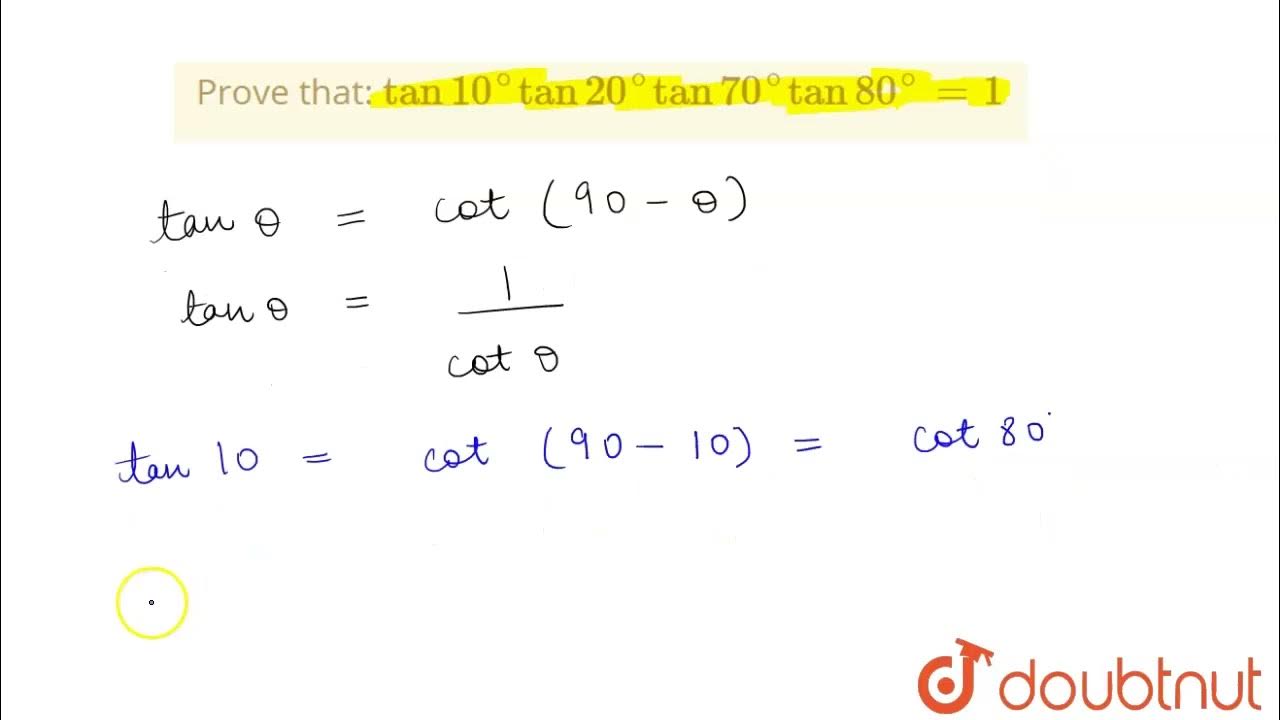 Prove that: tan 10° tan 20° tan 70° tan 80° = 1
tan θ = cot (90 - θ)
tan θ = 1 / cot θ
tan 10 = cot (90 - 10) = cot 80°
doubtnut